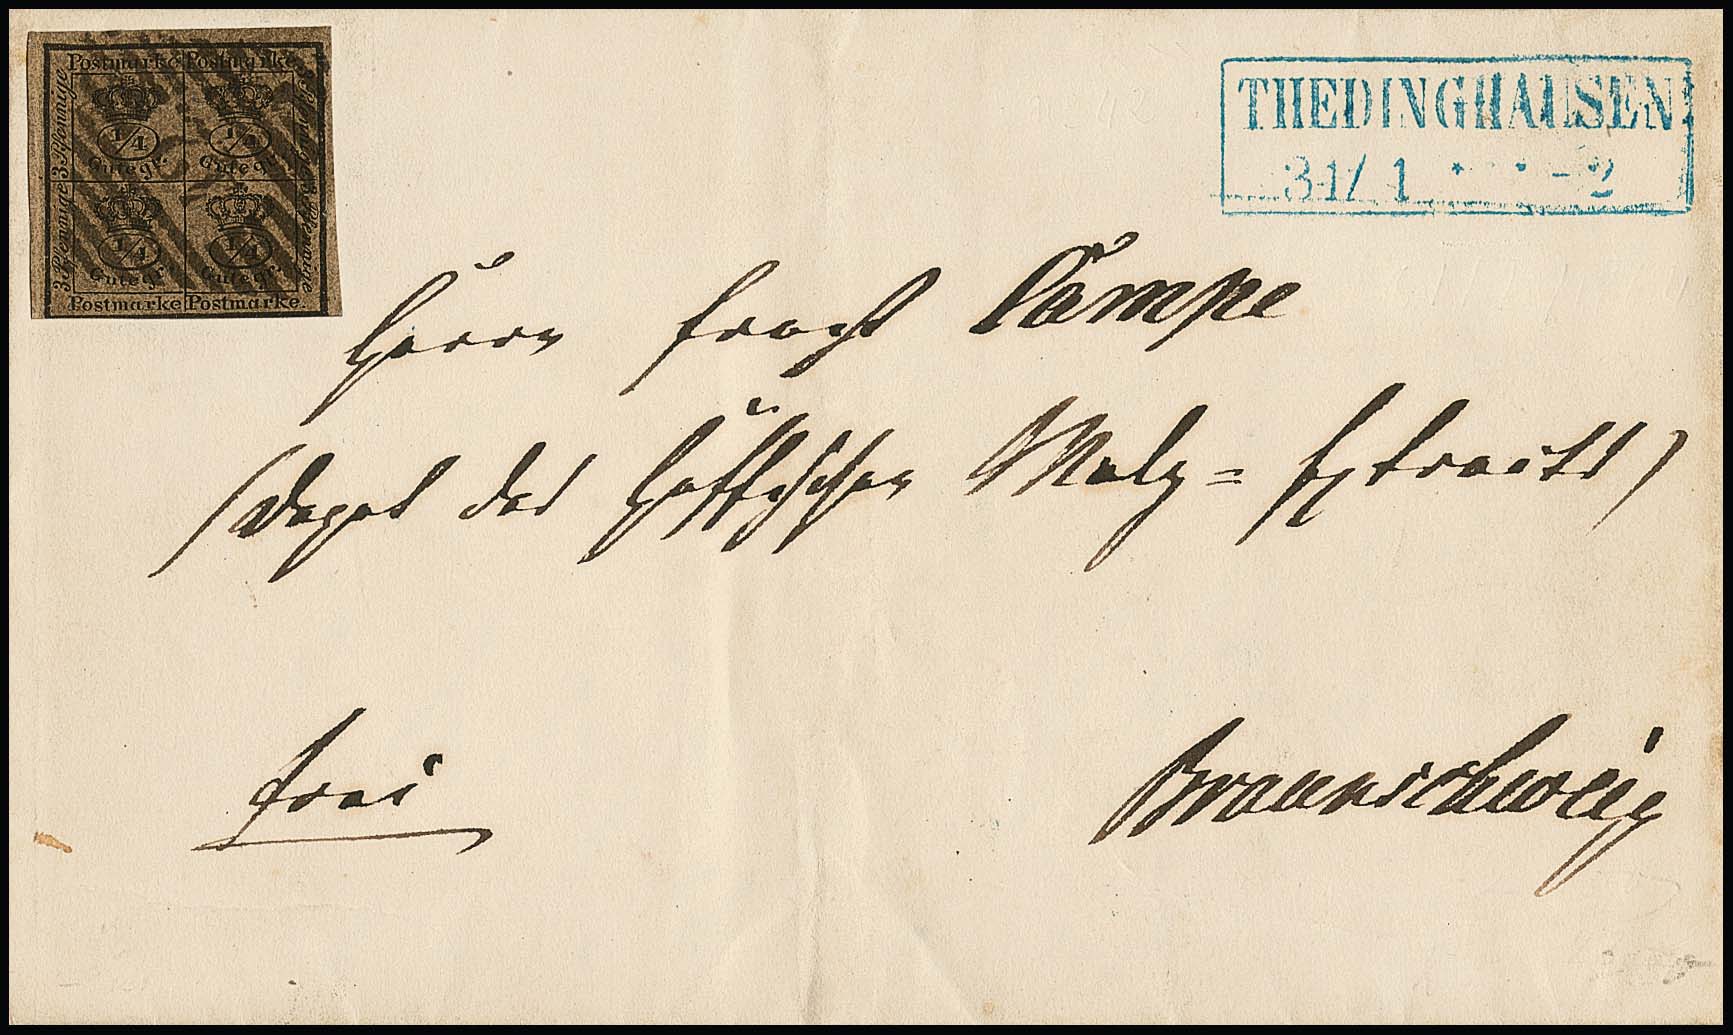 Postmarke Postmarke.
3 Pfennige 3 Pfennige
1/4 1/4
Gutegr. Gutegr.
1/4 1/4
Gutegr. Gutegr.
3 Pfennige 3 Pfennige
Postmarke Postmarke.
THEDINGHAUSEN
31/ 1 * * - 2
Herrn Ernst Campe
(Depot des Hoffschen Malz=Extracts)
frei
Braunschweig